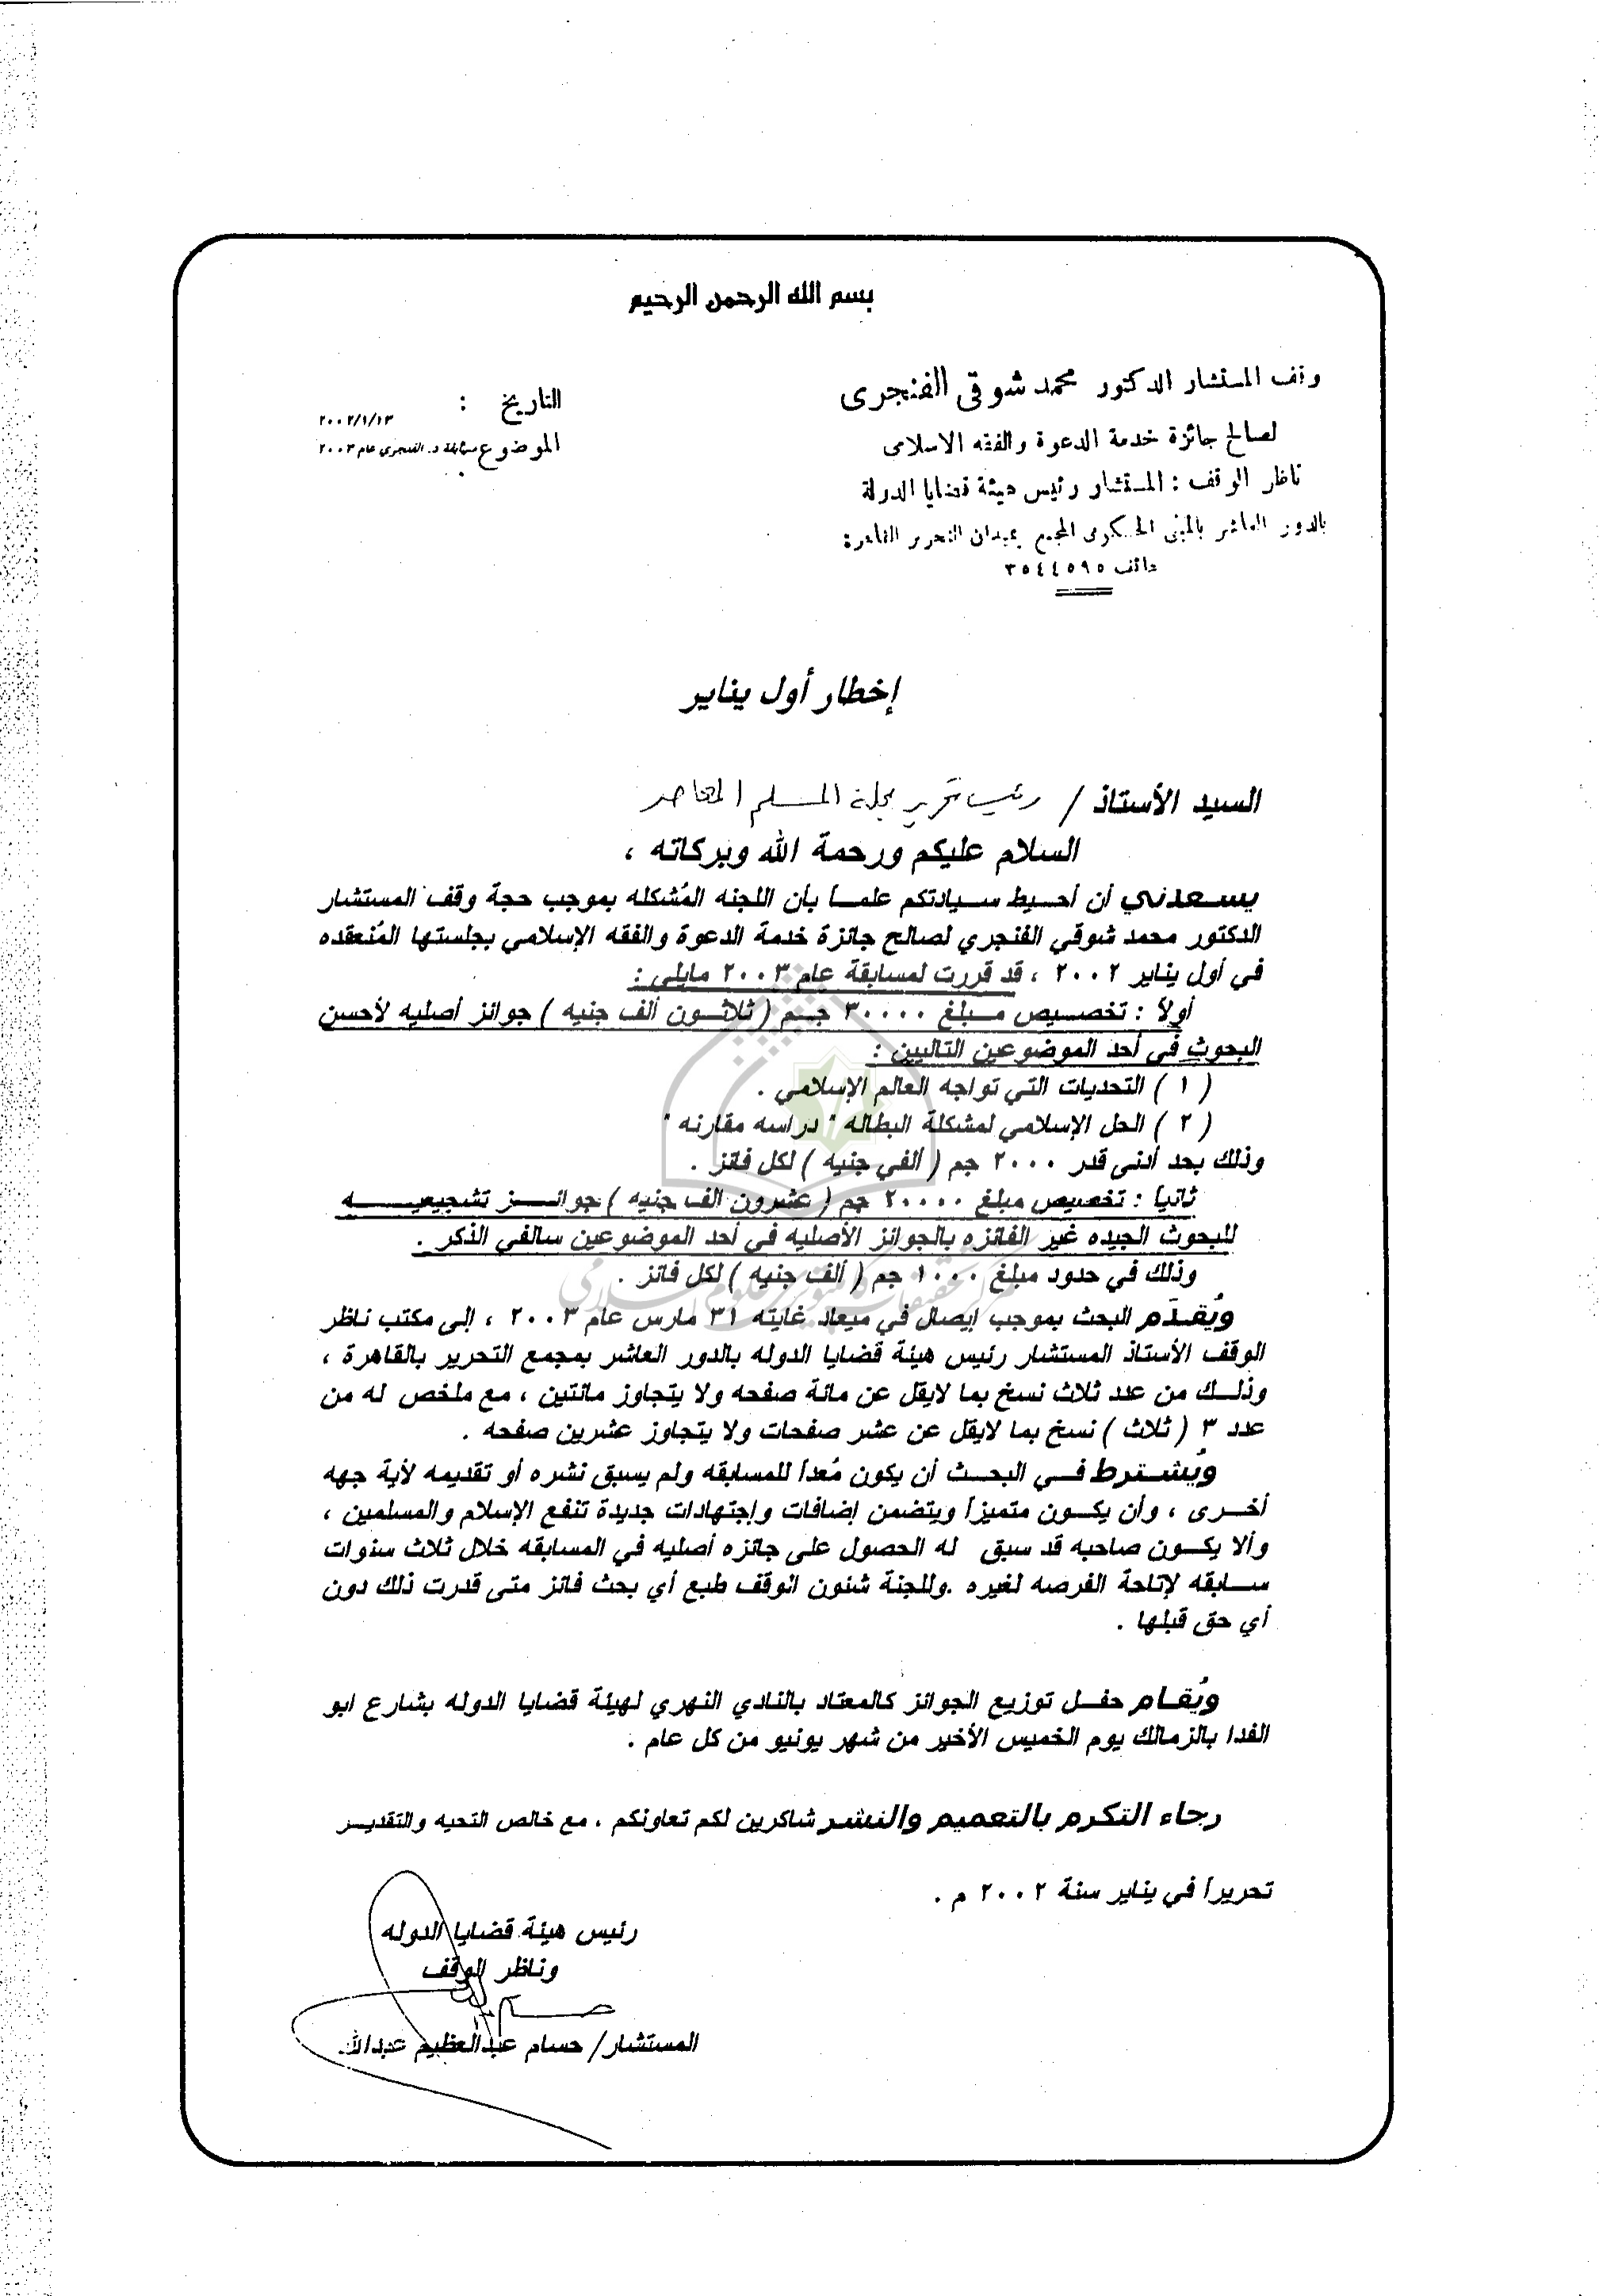 بسم الله الرحمن الرحيم
وقف المستشار الدكتور محمد شوقى الفنجرى
لصالح جائزة خدمة الدعوة والفقه الاسلامى
ناظر الوقف : المستشار رئيس هيئة قضايا الدولة
بالدور العاشر بالمبنى الحكومى المجمع بميدان التحرير القاهرة
هاتف ٣٥٤٤٥٩٥
التاريخ : ٢٠٠٢/١/١٣
الموضوع : مسابقة د. الفنجرى عام ٢٠٠٣
إخطار أول يناير
السيد الأستاذ / رئيس تحرير مجلة المسلم المعاصر
السلام عليكم ورحمة الله وبركاته ،
يسعدني أن أحيط سيادتكم علماً بأن اللجنه المُشكله بموجب حجة وقف المستشار
الدكتور محمد شوقي الفنجري لصالح جائزة خدمة الدعوة والفقه الإسلامي بجلستها المُنعقده
في أول يناير ٢٠٠٢ ، قد قررت لمسابقة عام ٢٠٠٣ مايلي :
أولاً : تخصيص مبلغ ٣٠٠٠٠ جم ( ثلاثون ألف جنيه ) جوائز أصليه لأحسن
البحوث في أحد الموضوعين التاليين :
( ١ ) التحديات التي تواجه العالم الإسلامي .
( ٢ ) الحل الإسلامي لمشكلة البطاله " دراسه مقارنه "
وذلك بحد أدنى قدر ٢٠٠٠ جم ( ألفي جنيه ) لكل فائز .
ثانياً : تخصيص مبلغ ٢٠٠٠٠ جم ( عشرون الف جنيه ) جوائز تشجيعيه
للبحوث الجيده غير الفائزه بالجوائز الأصليه في أحد الموضوعين سالفي الذكر .
وذلك في حدود مبلغ ١٠٠٠ جم ( ألف جنيه ) لكل فائز .
ويُقدَم البحث بموجب إيصال في ميعاد غايته ٣١ مارس عام ٢٠٠٣ ، إلى مكتب ناظر
الوقف الأستاذ المستشار رئيس هيئة قضايا الدوله بالدور العاشر بمجمع التحرير بالقاهرة ،
وذلك من عدد ثلاث نسخ بما لايقل عن مائة صفحه ولا يتجاوز مائتين ، مع ملخص له من
عدد ٣ ( ثلاث ) نسخ بما لايقل عن عشر صفحات ولا يتجاوز عشرين صفحه .
ويُشترط في البحث أن يكون مُعداً للمسابقه ولم يسبق نشره أو تقديمه لأية جهه
أخرى ، وأن يكون متميزاً ويتضمن إضافات وإجتهادات جديدة تنفع الإسلام والمسلمين ،
وألا يكون صاحبه قد سبق له الحصول على جائزه أصليه في المسابقه خلال ثلاث سنوات
سابقه لإتاحة الفرصه لغيره .وللجنة شئون الوقف طبع أي بحث فائز متى قدرت ذلك دون
أي حق قبلها .
ويُقام حفل توزيع الجوائز كالمعتاد بالنادي النهري لهيئة قضايا الدوله بشارع ابو
الفدا بالزمالك يوم الخميس الأخير من شهر يونيو من كل عام .
رجاء التكرم بالتعميم والنشر شاكرين لكم تعاونكم ، مع خالص التحيه والتقدير
تحريراً في يناير سنة ٢٠٠٢ م .
رئيس هيئة قضايا الدوله
وناظر الوقف
المستشار/ حسام عبدالعظيم عبدالله